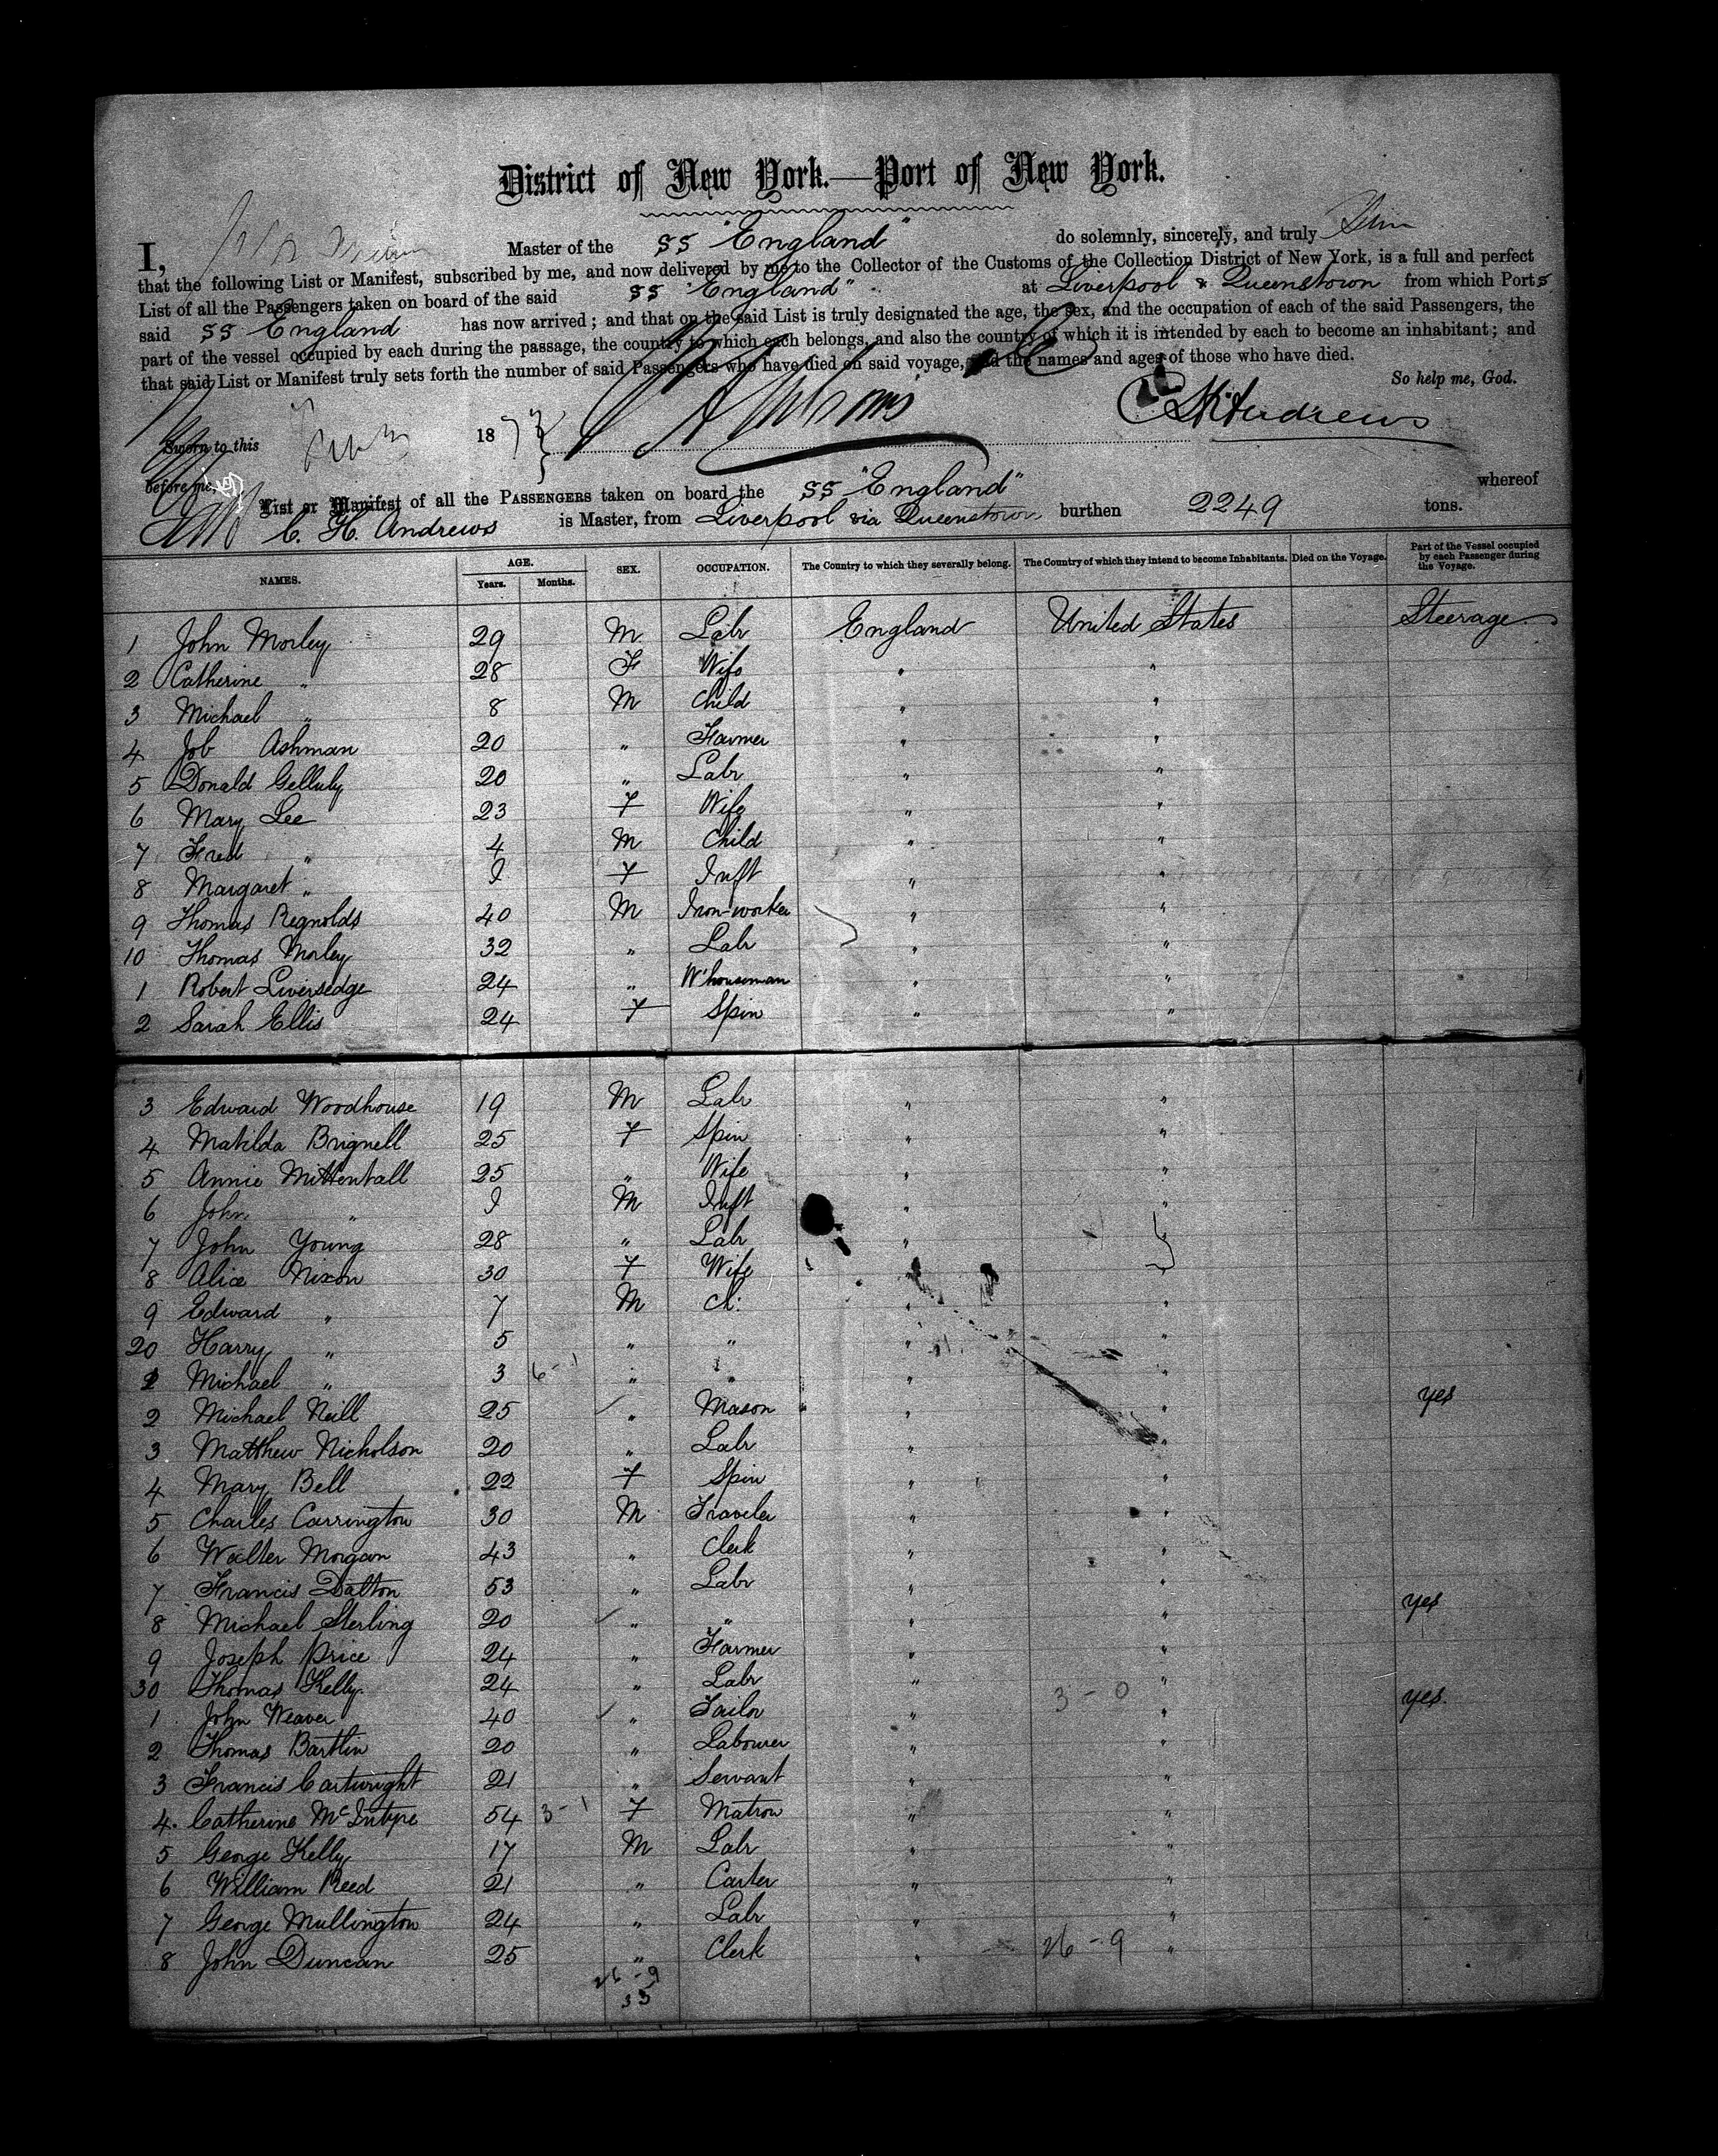 District of New York.—Port of New York.
I, Master of the SS "England" do solemnly, sincerely, and truly
that the following List or Manifest, subscribed by me, and now delivered by me to the Collector of the Customs of the Collection District of New York, is a full and perfect
List of all the Passengers taken on board of the said SS "England" at Liverpool & Queenstown from which Ports
said SS England has now arrived; and that on the said List is truly designated the age, the sex, and the occupation of each of the said Passengers, the
part of the vessel occupied by each during the passage, the country to which each belongs, and also the country of which it is intended by each to become an inhabitant; and
that said List or Manifest truly sets forth the number of said Passengers who have died on said voyage, and the names and ages of those who have died.
So help me, God.
Sworn to this 187
before me,
List or Manifest of all the PASSENGERS taken on board the SS "England" whereof
C. H. Andrews is Master, from Liverpool via Queenstown, burthen 2249 tons.
NAMES. AGE. Years. Months. SEX. OCCUPATION. The Country to which they severally belong. The Country of which they intend to become Inhabitants. Died on the Voyage. Part of the Vessel occupied by each Passenger during the Voyage.
1 John Morley 29 M Labr England United States Steerage
2 Catherine " 28 F Wife " "
3 Michael " 8 M Child " "
4 Job Ashman 20 " Farmer " "
5 Donald Gelluly 20 " Labr " "
6 Mary Lee 23 F Wife " "
7 Fred " 4 M Child " "
8 Margaret " I F Inft " "
9 Thomas Regnolds 40 M Iron-worker " "
10 Thomas Morley 32 " Labr " "
1 Robert Liversedge 24 " W'houseman " "
2 Sarah Ellis 24 F Spin " "
3 Edward Woodhouse 19 M Labr " "
4 Matilda Brignell 25 F Spin " "
5 Annie Mittentall 25 " Wife " "
6 John " I M Inft " "
7 John Young 28 " Labr " "
8 Alice Nixon 30 F Wife " "
9 Edward " 7 M Ch: " "
20 Harry " 5 " " " "
1 Michael " 3 6-1 " " " "
2 Michael Neill 25 " Mason " " yes
3 Matthew Nicholson 20 " Labr " "
4 Mary Bell 22 F Spin " "
5 Charles Carrington 30 M Traveler " "
6 Walter Morgan 43 " Clerk " "
7 Francis Dalton 53 " Labr " "
8 Michael Sterling 20 " " " " yes
9 Joseph Price 24 " Farmer " "
30 Thomas Kelly 24 " Labr " 3-0 "
1 John Weaver 40 " Tailor " " yes
2 Thomas Bartlin 20 " Labourer " "
3 Francis Cartwright 21 " Servant " "
4. Catherine McIntyre 54 3-1 F Matron " "
5 George Kelly 17 M Labr " "
6 William Reed 21 " Carter " "
7 George Mullington 24 " Labr " "
8 John Duncan 25 " Clerk " 26-9 "
26-9
33